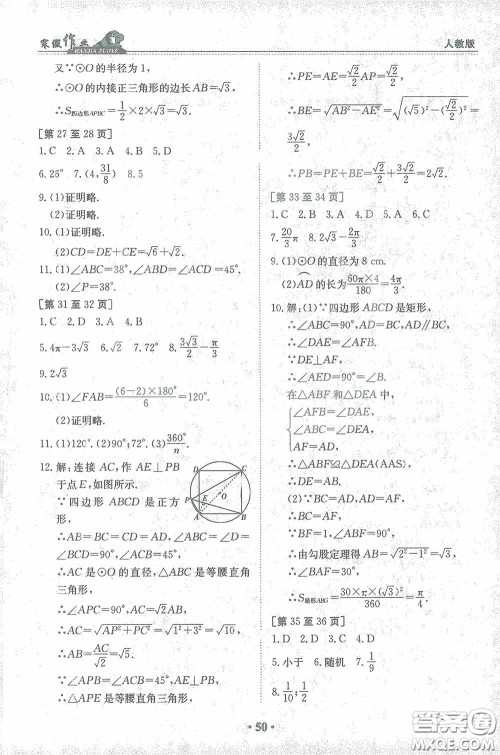 寒假作业
HANJIA ZUOYE
人教版
又∵⊙O的半径为1,
∴⊙O的内接正三角形的边长AB=√3,
∴S四边形APBC=1/2×2×√3=√3.
[第27至28页]
1.C 2.A 3.A 4.B
6.26° 7.(4,31/8) 8.5
9.(1)证明略.
10.(1)证明略.
(2)CD=DE+CE=√6+√2.
11.(1)∠ABC=38°,∠ABD=45°.
(2)∠P=38°.
[第31至32页]
1.C 2.D 3.A 4.B
5.4π-3√3 6.√2 7.72° 8.3√3/2-π/3
9.2√3
10.(1)∠FAB=(6-2)×180°/6=120°.
(2)证明略.
11.(1)120°.(2)90°;72°.(3)360°/n
12.解:连接AC,作AE⊥PB
于点E,如图所示.
∵四边形ABCD是正方
形,
∴AB=BC=CD=AD,∠D=∠ABC=90°,
∴AC是⊙O的直径,△ABC是等腰直角
三角形,
∴∠APC=90°,∠ACB=45°,
∴AC=√(AP²+PC²)=√(1²+3²)=√10,
∴AB=AC/√2=√5.
∵∠APB=∠ACB=45°,AE⊥PB,
∴△APE是等腰直角三角形,
D
C
P
E
O
A
B
∴PE=AE=√2/2 PA=√2/2,
∴BE=√(AB²-AE²)=√((√5)²-(√2/2)²)=
3√2/2,
∴PB=PE+BE=√2/2+3√2/2=2√2.
[第33至34页]
1.C 2.B 3.D 4.D 5.A 6.D
7.20/3 π 8.2√3-2/3 π
9.(1)⊙O的直径为8 cm.
(2)AD的长为60π×4/180=4π/3.
10.解:(1)∵四边形ABCD是矩形,
∴∠ABC=90°,AD∥BC,
∴∠DAE=∠AFB.
∵DE⊥AF,
∴∠AED=90°=∠B.
在△ABF和△DEA中,
∠AFB=∠DAE,
∠ABF=∠DEA,
AF=DA,
∴△ABF≌△DEA(AAS),
∴DE=AB.
(2)∵BC=AD,AD=AF,
∴BC=AF.
∵BF=1,∠ABF=90°,
∴由勾股定理得AB=√(2²-1²)=√3,
∴∠BAF=30°.
∴S扇形ABG=30×π×(√3)²/360=π/4.
[第35至36页]
1.D 2.D 3.A 4.C
5.小于 6.随机 7.1/9
8.1/10;1/2
· 50 ·
答案圈